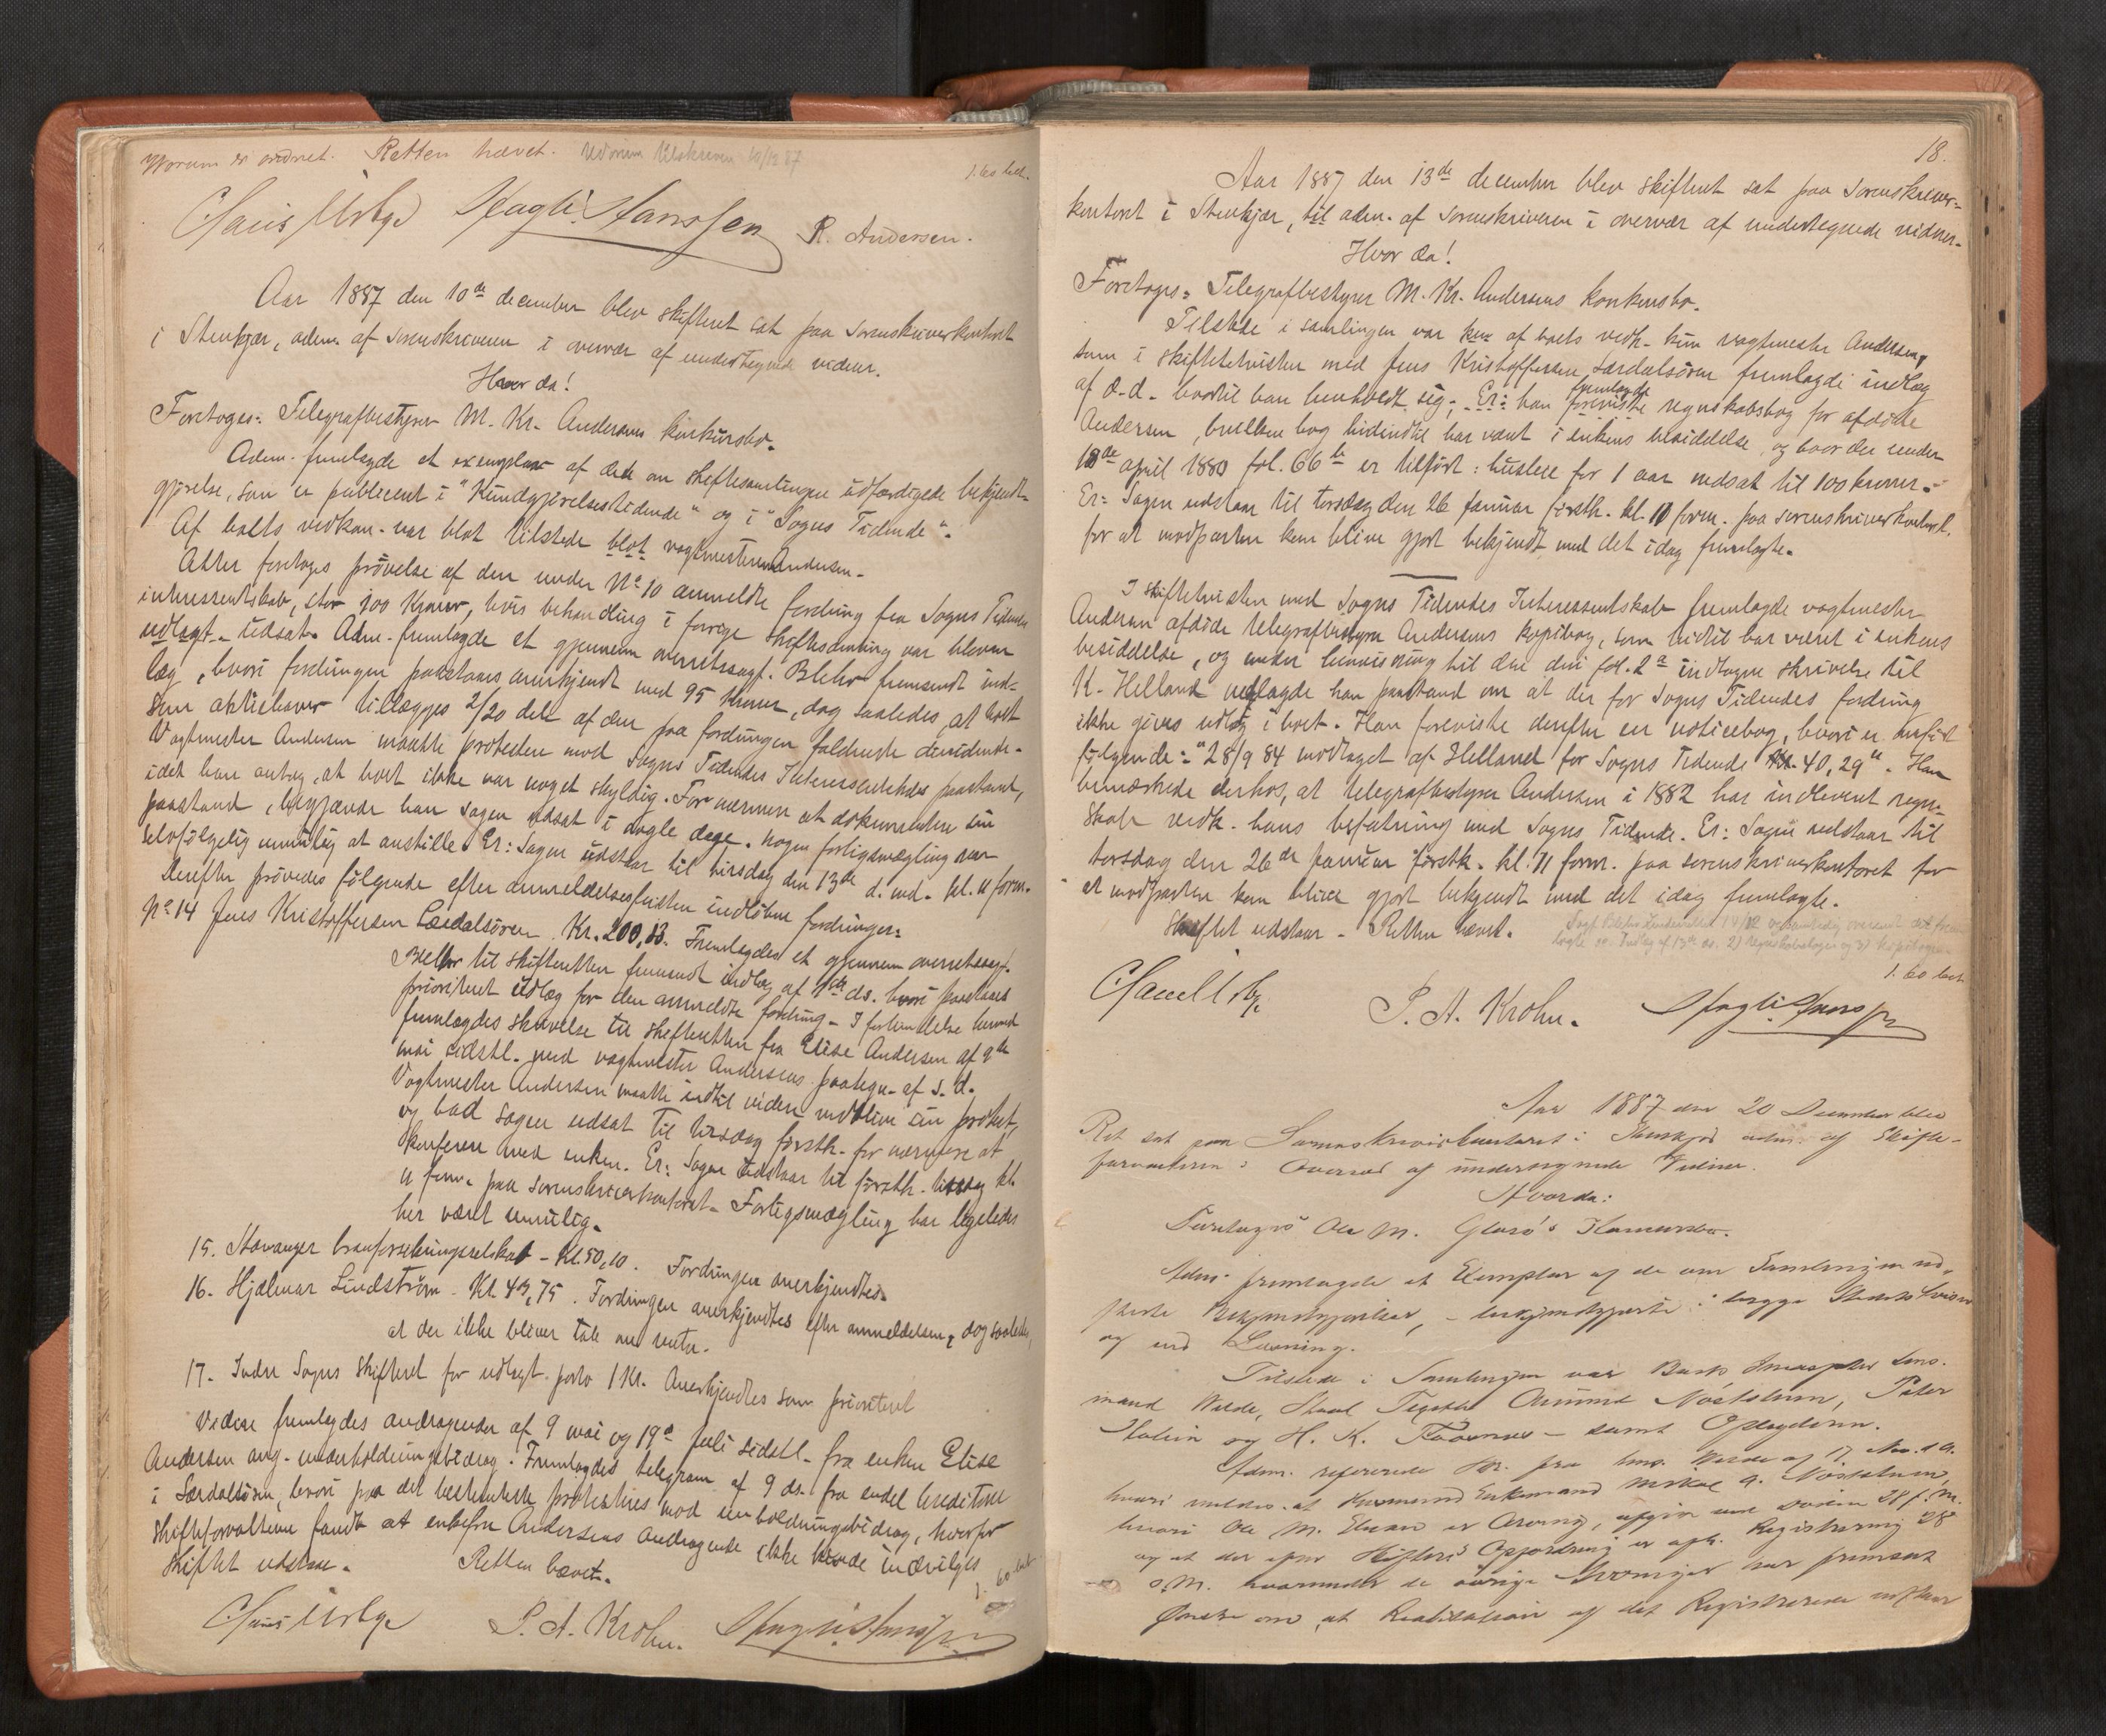 Retten hævet.
1. 60 bet.
R. Andersen.
Aar 1887 den 10de december blev skifteret sat paa sorenskriverkontoret
i Stenkjær, adm. af sorenskriveren i overvær af undertegnede vidner.
Hvor da!
Foretoges: Telegrafbestyrer M. Kr. Andersens konkursbo.
Adm. fremlagde et exemplar af de om skiftesamlingen udfærdigede bekjendt-
gjørelse, som er publiceret i "Kundgjørelsestidende" og i "Sogns Tidende".
Af boets vedkom. var blot tilstede blot vagtmester Andersen.
Atter foretoges prøvelse af den under No 10 anmeldte fordring fra Sogns Tidendes
interessentskab, stor 100 Kroner, hvis behandling i forrige skiftesamling var bleven
udlagt - udsat. Adm. fremlagde et gjennem overretssagf. Blehr fremsendt ind-
læg, hvori fordringen paastaaes anerkjendt med 95 Kroner, dog saaledes, at boet
som aktiehaver tillægges 2/20 dele af den paa fordringen faldende dividende.
Vagtmester Andersen maatte protestere mod Sogns Tidendes Interessentskabs paastand,
idet han antog, at boet ikke var noget skyldig. For nærmere at dokumentere sin
paastand, begjærede han sagen udsat i nogle dage. Nogen forligsmægling var
selvfølgelig umulig at anstille. Er: Sagen udstaar til tirsdag den 13de d. md. kl. 11 form.
Derefter prøvedes følgende efter anmeldelsesfristen indløbne fordringer:
No 14 Jens Kristoffersen Lærdalsøren. Kr. 200,13. Fremlagdes et gjennem overretssagf.
Blehr til skifteretten fremsendt indlæg af 1ste ds. hvori paastaaes
prioriteret udlæg for den anmeldte fordring - I forbindelse hermed
fremlagdes skrivelse til skifteretten fra Elise Andersen af 9de
mai sidstl. med vagtmester Andersens paategn. af s. d.
Vagtmester Andersen maatte indtil videre vedblive sin protest,
og bad sagen udsat til tirsdag førstk. for nærmere at
konferere med enken. Er: Sagen udstaar til førstk. tirsdag kl.
11 form. paa sorenskriverkontoret. Forligsmægling har ligeledes
her været umulig.
15. Stavanger brandforsikringsselskab - Kr. 50,10. Fordringen anerkjendtes.
16. Hjalmar Lindstrøm - Kr. 49,75. Fordringen anerkjendtes efter anmeldelsen, dog saaledes,
at der ikke bliver tale om renter.
17. Indre Sogns skifteret for udlagt porto 1 Kr. Anerkjendtes som prioriteret
Videre fremlagdes andragender af 9 mai og 19de juli sidstl. fra enken Elise
Andersen ang. underholdningsbidrag. Fremlagdes telegram af 9 ds. fra endel kreditorer
i Lærdalsøren, hvori paa det bestemteste protesteres mod underholdningsbidrag, hvorfor
skifteforvalteren fandt at enkefru Andersens andragende ikke kunde indvilges
Skiftet udstaar. Retten hævet.
1. 60 bet
P. A. Krohn.
18.
Aar 1887 den 13de december blev skifteret sat paa sorenskriver-
kontoret i Stenkjær, til adm. af sorenskriveren i overvær af undertegnede vidner.
Hvor da!
Foretoges: Telegrafbestyrer M. Kr. Andersens konkursbo.
Tilstede i samlingen var kun af boets vedk. kun vagtmester Andersen,
som i skiftetvisten med Jens Kristoffersen Lærdalsøren fremlagde indlæg
af d.d. hvortil han henholdt sig; Er: han foreviste fremlagde regnskabsbog for afdøde
Andersen, hvilken bog hidindtil har været i enkens besiddelse, og hvor der under
18de april 1880 fol. 66 b er tilført: husleie for 1 aar nedsat til 100 kroner.
Er: Sagen udstaar til torsdag den 26 januar førstk. kl. 11 form. paa sorenskriverkontoret,
for at modparten kan blive gjort bekjendt med det idag fremlagte.
I skiftetvisten med Sogns Tidendes Interessentskab fremlagde vagtmester
Andersen afdøde telegrafbestyrer Andersens kopibog, som hidtil har været i enkens
besiddelse, og under henvisning til den deri fol. 2a indtagne skrivelse til
K. Helland nedlagde han paastand om at der for Sogns Tidendes fordring
ikke gives udlæg i boet. Han foreviste derefter en noticebog, hvori er anført
følgende: "28/9 84 modtaget af Helland for Sogns Tidende Kr. 40,29". Han
bemærkede derhos, at telegrafbestyrer Andersen i 1882 har indleveret regn-
skab vedk. hans befatning med Sogns Tidende. Er: Sagen udstaar til
torsdag den 26de januar førstk. kl. 11 form. paa sorenskriverkontoret for
at modparten kan blive gjort bekjendt med det idag fremlagte.
Skiftet udstaar - Retten hævet.
1. 60 bet
P. A. Krohn.
Aar 1887 den 20 December blev
Ret sat paa Sorenskriverkontoret i Stenkjær adm. af Skifte-
forvalteren i Overvær af undertegnede Vidner.
Hvorda:
Foretoges Ole M. Konkursbo.
Adm. fremlagde et Exemplar af de om Samlingen ud-
Bekjendtgjørelser, - bekjendtgjorte i begge
og ved Læsning.
Tilstede i Samlingen var Boets Lens-
mand Amund Nøstelum, Peter
og H. K. - samt
Adm. refererede Skr. fra Lens. af 17 Nov. d. A.